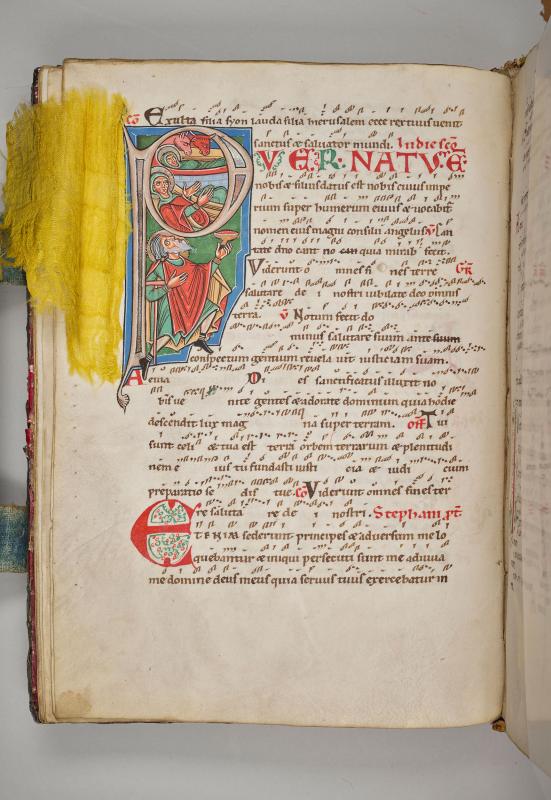 cō Exulta filia syon lauda filia hierusalem ecce rex tuus uenit
sanctus & saluator mundi. In die scō
PVER NATVS E
nobis & filius datus est nobis cuius impe
rium super humerum eius & uocabit
nomen eius magni consilii angelus. V̄ Can
tate dno cant no quia mirab fecit.
Viderunt o mnes fi nes terre GR̄
salutare de i nostri iubilate deo omnis
terra. V̄ Notum fecit do
minus salutare suum ante suum
conspectum gentium reuela uit iusticiam suam.
Aeuia D es sanctificatus illuxit no
bis ue nite gentes & adorate dominum quia hodie
descendit lux mag na super terram. off Tui
sunt celi & tua est terra orbem terrarum & plenitudi
nem e ius tu fundasti iusti cia & iudi cium
preparatio se dis tue. cō Viderunt omnes fines ter
re saluta re de i nostri. Stephani. pt̄
ETENIM sederunt principes & aduersum me lo
quebantur & iniqui persecuti sunt me adiuua
me domine deus meus quia seruus tuus exercebatur in